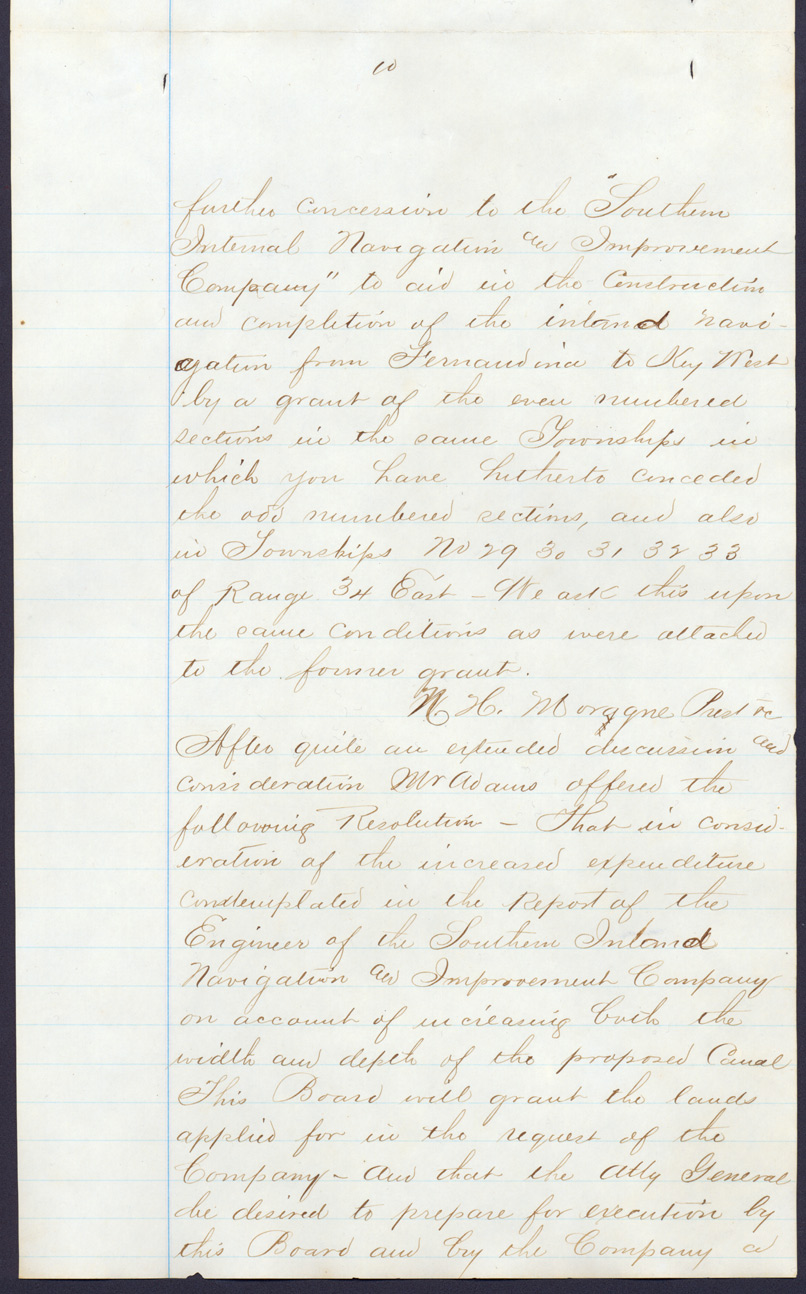 10
further concession to the "Southern
Internal Navigation and Improvement
Company" to aid in the Construction
and completion of the inland navi-
gation from Fernandina to Key West
by a grant of the even numbered
sections in the same Townships in
which you have hitherto conceded
the odd numbered sections, and also
in Townships No 29 30 31 32 33
of Range 34 East - We ask this upon
the same conditions as were attached
to the former grant.
N. H. Moragne Prest &c
After quite an extended discussion and
consideration Mr Adams offered the
following Resolution - That in consid-
eration of the increased expenditure
contemplated in the Report of the
Engineer of the Southern Inland
Navigation and Improvement Company
on account of increasing both the
width and depth of the proposed Canal
This Board will grant the lands
applied for in the request of the
Company - And that the Atty General
be desired to prepare for execution by
this Board and by the Company a